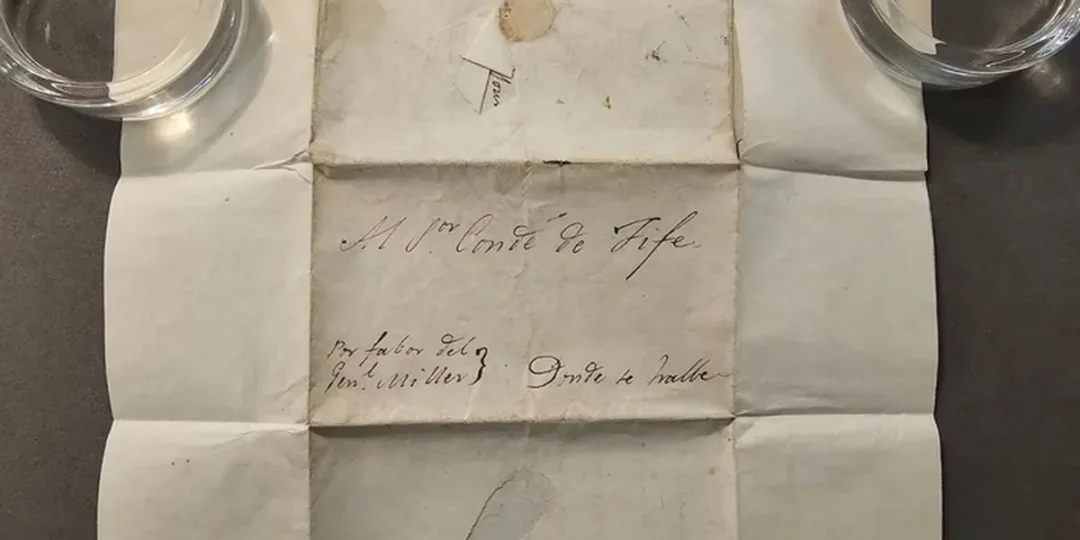 Al Sor Conde de Fife
Por fabor del
Genl Miller} Donde se halle